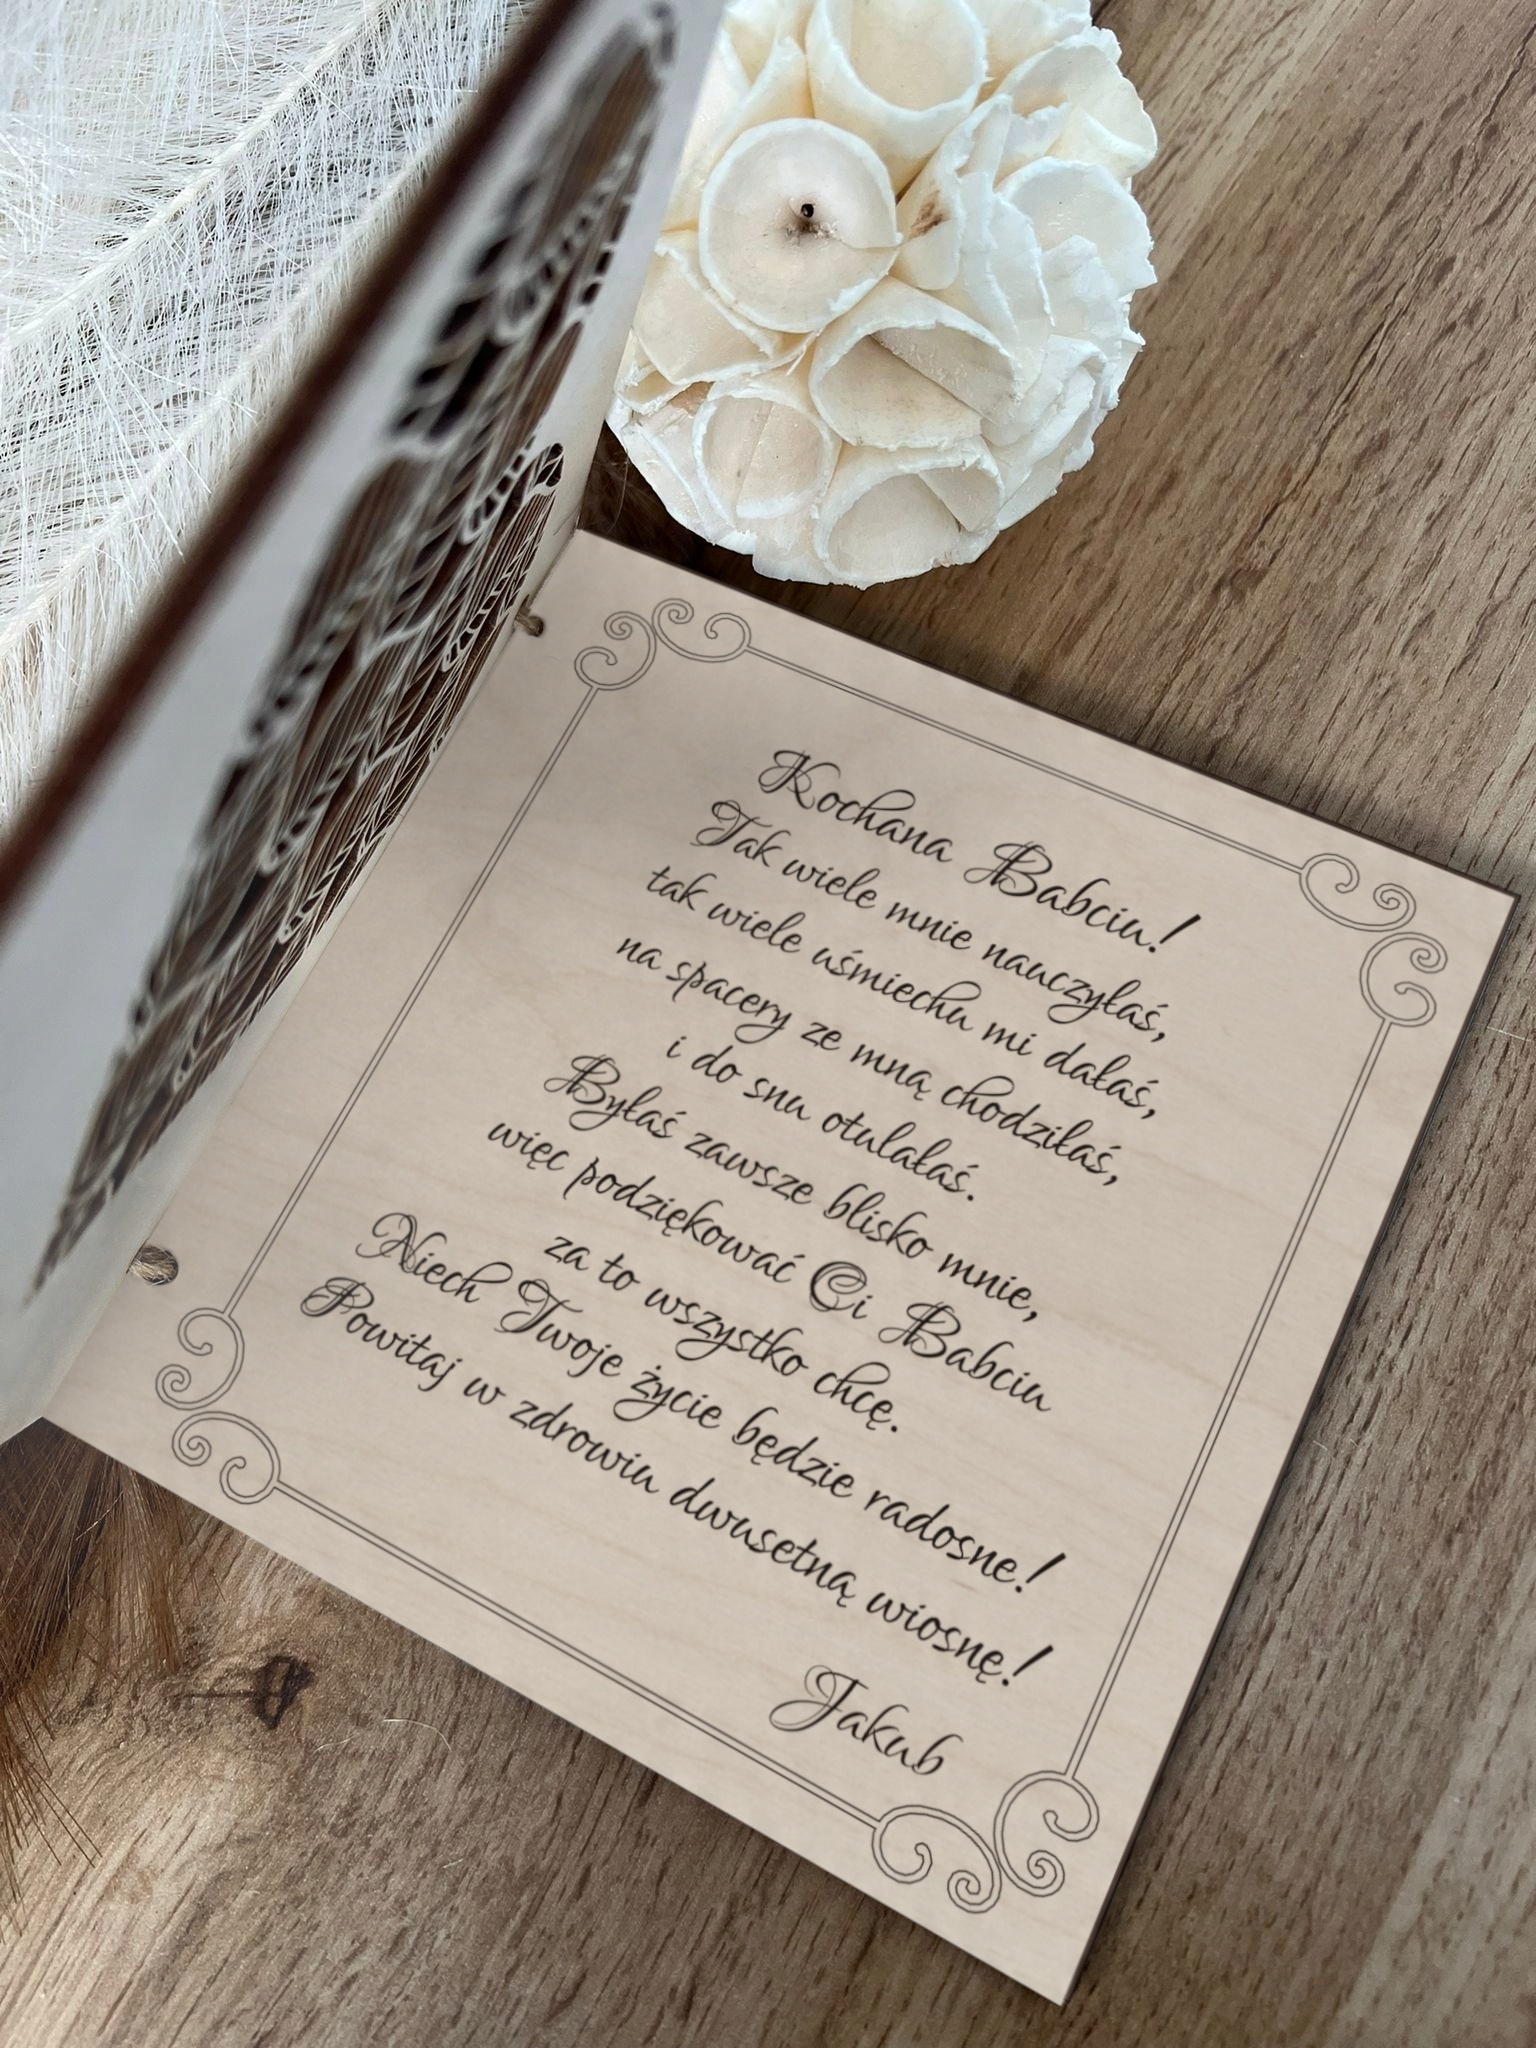 Kochana Babciu!
Tak wiele mnie nauczyłaś,
tak wiele uśmiechu mi dałaś,
na spacery ze mną chodziłaś,
i do snu otulałaś.
Byłaś zawsze blisko mnie,
więc podziękować Ci Babciu
za to wszystko chcę.
Niech Twoje życie będzie radosne!
Powitaj w zdrowiu dwusetną wiosnę!
Jakub